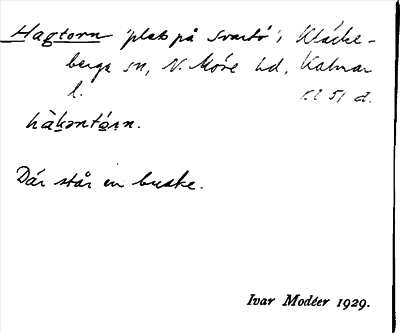 Hagtorn 'plats på Svartö', Kläcke-
berga sn, N. Möre hd, Kalmar
l. Kl 51 d.
hàkəntórn.
Där står en buske.
Ivar Modéer 1929.